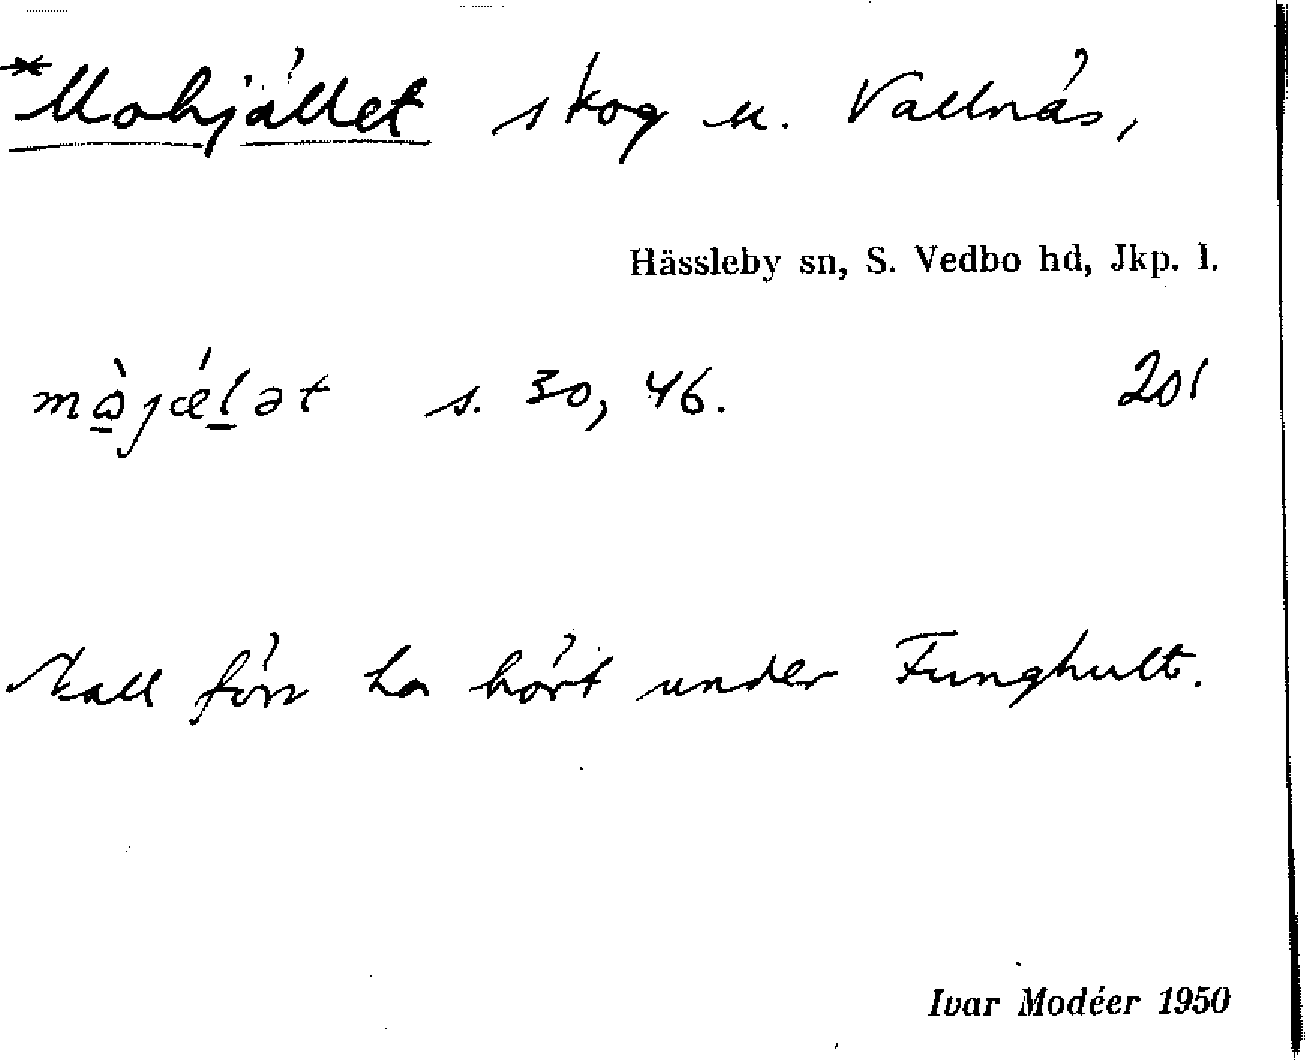 *Mohjället skog u. Vallnäs,
Hässleby sn, S. Vedbo hd, Jkp. l.
mo̲̊̀jæ̀l̲ət s. 30, 46. 201
Skall förr ha hört under Funghult.
Ivar Modéer 1950